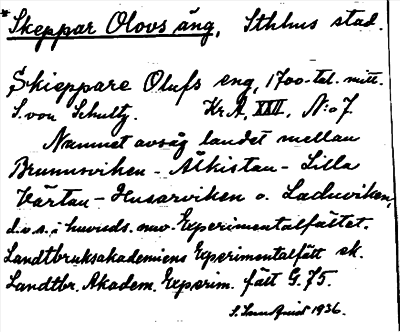 *Skeppar Olovs äng, Sthlms stad.
Skieppare Olufs eng, 1700-tal. mitt.
S. von Schultz. Kr.A, XXII, N:o 7
Namnet avsåg landet mellan
Brunnsviken - Ålkistan - Lilla
Värtan - Husarviken o. Laduviken,
d.v.s. i huvuds. nuv. Experimentalfältet.
Landtbruksakademiens Experimentalfält ek.
Landtbr. Akadem. Experim. fält G. 75.
1936.